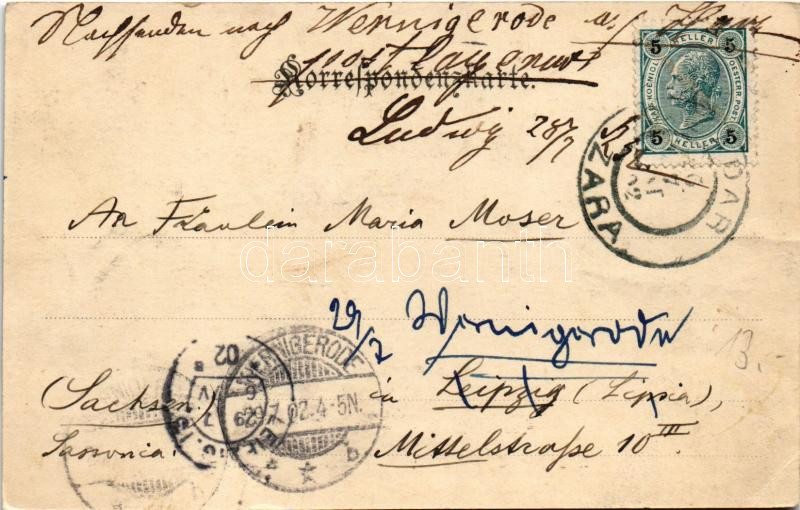 Nachsenden nach Wernigerode a. / Harz
postlagernd
Korrespondenzkarte.
5 HELLER 5
KAIS. KOENIGL. OESTERR. POST
5 HELLER 5
Ludwig 28/7
ZADAR
ZARA
An Fräulein Maria Moser
darabanth
29/7 Wernigerode
in Leipzig (Lipsia),
(Sachsen)
Sassonia
Mittelstraße 10 III
WERNIGERODE
29.7.02.4-5N.
b
02
13.-